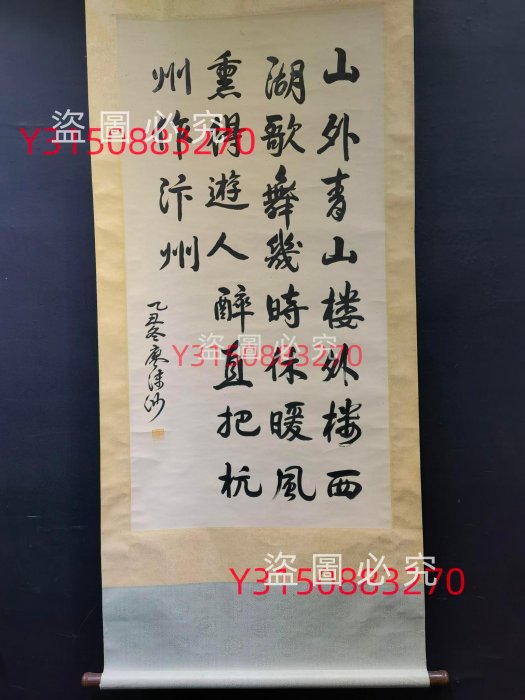 山外青山楼外楼西
湖歌舞幾時休暖風
熏得遊人醉直把杭
州作汴州
乙丑冬廖沫沙
盜圖必究
Y3150883270
盜圖必究
Y3150883270
盜圖必究
Y3150883270